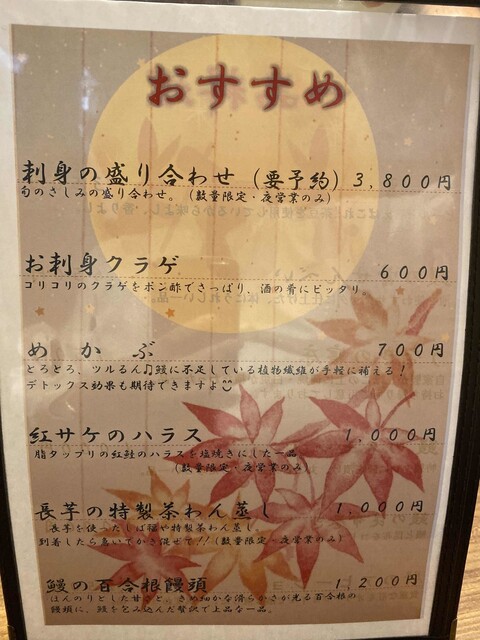 おすすめ
刺身の盛り合わせ (要予約) 3,800円
旬のさしみの盛り合わせ。(数量限定・夜営業のみ)
お刺身クラゲ 600円
コリコリのクラゲをポン酢でさっぱり、酒の肴にピッタリ。
めかぶ 700円
とろとろ、ツルるん♫鰻に不足している植物繊維が手軽に補える！
デトックス効果も期待できますよ
紅サケのハラス 1,000円
脂タップリの紅鮭のハラスを塩焼きにした一品
(数量限定・夜営業のみ)
長芋の特製茶わん蒸し 1,000円
長芋を使った 特製茶わん蒸し。
到着したら急いでかき混ぜて!! (数量限定・夜営業のみ)
鰻の百合根饅頭 1,200円
ほんのりとした甘さと、きめ細かな滑らかさが光る百合根の
饅頭に、鰻を包み込んだ贅沢で上品な一品。